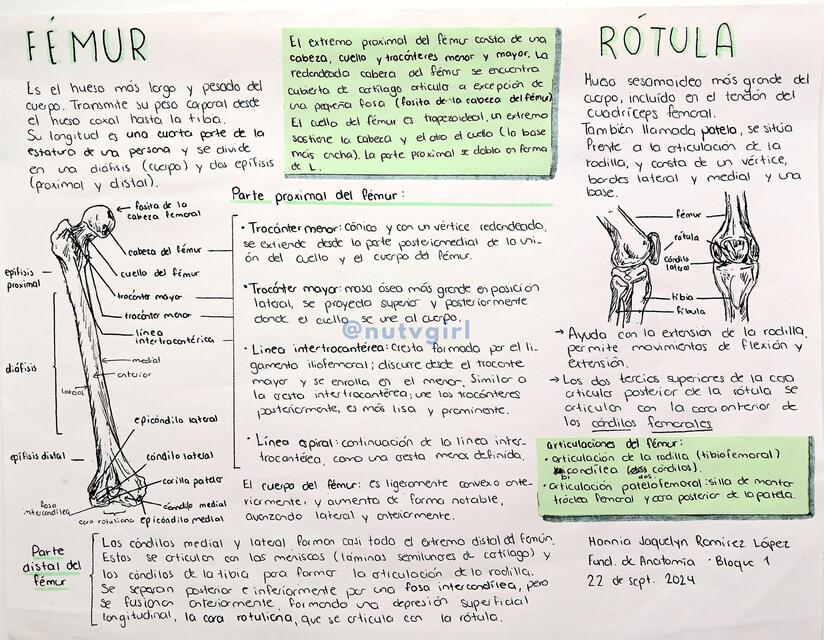 FÉMUR
Es el hueso más largo y pesado del
cuerpo. Transmite su peso corporal desde
el hueso coxal hasta la tibia.
Su longitud es una cuarta parte de la
estatura de una persona y se divide
en una diáfisis (cuerpo) y dos epífisis
(proximal y distal).
El extremo proximal del fémur consta de una
cabeza, cuello y trocánteres menor y mayor. La
redondeada cabeza del fémur se encuentra
cubierta de cartílago articular a excepción de
una pequeña fosa (fosita de la cabeza del fémur)
El cuello del fémur es trapezoidal, un extremo
sostiene la cabeza y el otro el cuello (la base
más ancha). La parte proximal se dobla en forma
de L.
RÓTULA
Hueso sesamoideo más grande del
cuerpo, incluido en el tendón del
cuadríceps femoral.
También llamada patela, se sitúa
frente a la articulación de la
rodilla, y consta de un vértice,
bordes lateral y medial y una
base.
fosita de la
cabeza femoral
cabeza del fémur
cuello del fémur
epífisis
proximal
trocánter mayor
trocánter menor
línea
intertrocantérica
diáfisis
medial
anterior
lateral
epicóndilo lateral
epífisis distal
cóndilo lateral
carilla patelar
fosa
intercondílea
cóndilo medial
cara rotuliana
epicóndilo medial
Parte proximal del fémur:
• Trocánter menor: cónico y con un vértice redondeado,
se extiende desde la parte posteriomedial de la uni-
ón del cuello y el cuerpo del fémur.
• Trocánter mayor: masa ósea más grande en posición
lateral, se proyecta superior y posteriormente
donde el cuello se une al cuerpo.
@nutvgirl
• Línea intertrocantérea: Cresta formada por el li-
gamento iliofemoral; discurre desde el trocante
mayor y se enrolla en el menor. Similar a
la cresta intertrocantérea; une los trocánteres
posteriormente, es más lisa y prominente.
• Línea espiral: continuación de la línea inter-
trocantérea, como una cresta menos definida.
El cuerpo del fémur: es ligeramente convexo ante-
riormente, y aumenta de forma notable,
avanzando lateral y anteriormente.
fémur
rótula
cóndilo
lateral
tibia
fíbula
→ Ayuda con la extensión de la rodilla,
permite movimientos de flexión y
extensión.
→ Los dos tercios superiores de la cara
articular posterior de la rótula se
articulan con la cara anterior de
los cóndilos femorales
articulaciones del fémur:
• articulación de la rodilla (tibiofemoral)
bicondílea (dos cóndilos).
• articulación patelofemoral: silla de montar
tróclea femoral y cara posterior de la patela.
Parte
distal del
fémur
Los cóndilos medial y lateral forman casi todo el extremo distal del fémur.
Estos se articulan con los meniscos (láminas semilunares de cartílago) y
los cóndilos de la tibia para formar la articulación de la rodilla.
Se separan posterior e inferiormente por una fosa intercondílea, pero
se fusionan anteriormente, formando una depresión superficial
longitudinal, la cara rotuliana, que se articula con la rótula.
Hannia Jaquelyn Ramírez López
Fund. de Anatomía · Bloque 1
22 de sept. 2024